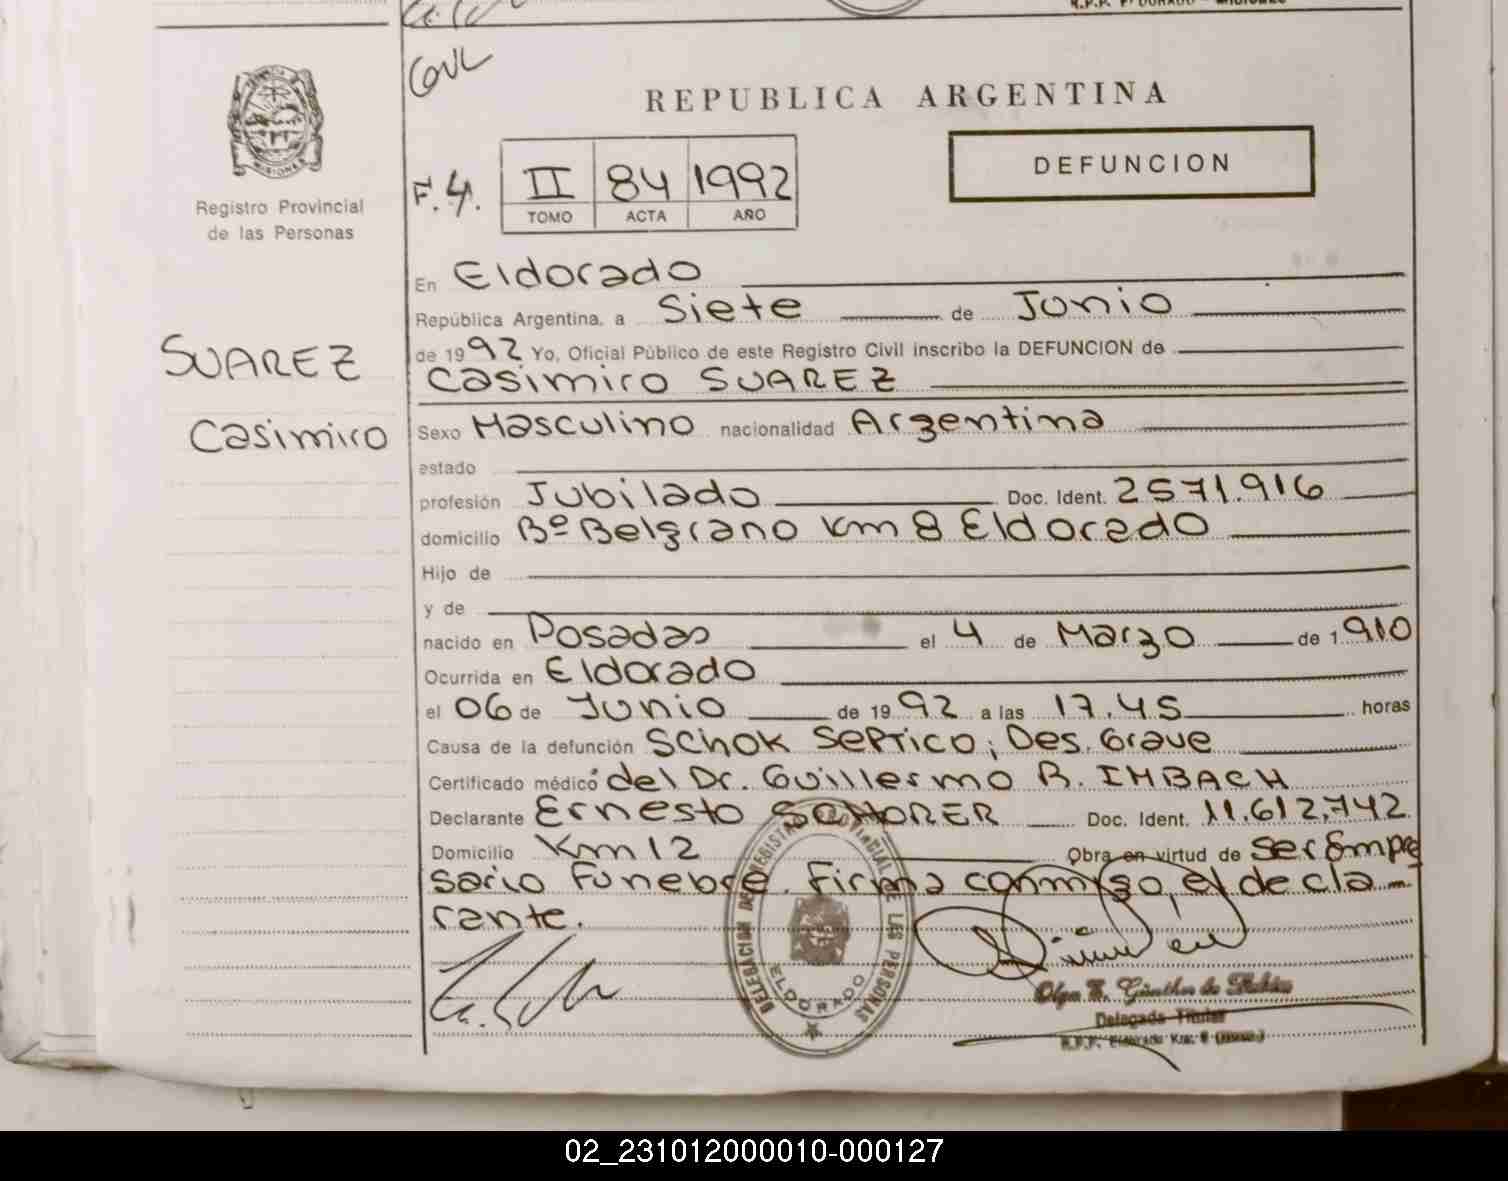 CONL
REPUBLICA ARGENTINA
MISIONES
Registro Provincial
de las Personas
F.4. II 84 1992
TOMO ACTA AÑO
DEFUNCION
En Eldorado
República Argentina, a Siete de Junio
de 1992 Yo, Oficial Público de este Registro Civil inscribo la DEFUNCION de
SUAREZ
Casimiro
Casimiro SUAREZ
Sexo Masculino nacionalidad Argentina
estado
profesión Jubilado Doc. Ident. 2571.916
domicilio Bº Belgrano Km 8 Eldorado
Hijo de
y de
nacido en Posadas el 4 de Marzo de 1.910
Ocurrida en Eldorado
el 06 de Junio de 1992 a las 17.45 horas
Causa de la defunción Schok Septico; Des. Grave
Certificado médico del Dr. Guillermo R. IMBACH
Declarante Ernesto SCHORER Doc. Ident. 11.612.742
Domicilio Km 12 Obra en virtud de ser Empre
sario Funebre. Firma conmigo, el decla-
rante.
DELEGACION DE REGISTRO PROVINCIAL DE LAS PERSONAS
ELDORADO
Olga Günther de
Delegada Titular
R.P.P. Eldorado Km. 8
02_231012000010-000127